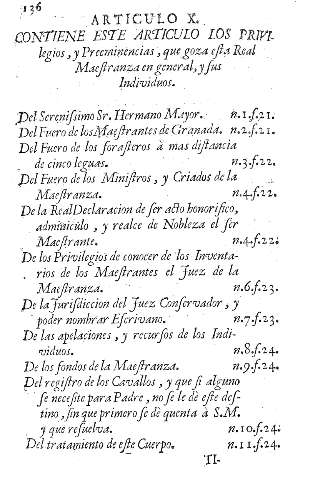 136
ARTICULO X.
CONTIENE ESTE ARTICULO LOS PRIVI-
legios, y Preeminencias, que goza eſta Real
Maeſtranza en general, y ſus
Individuos.
Del Sereniſsimo Sr. Hermano Mayor. n.1.f.21.
Del Fuero de los Maeſtrantes de Granada. n.2.f.21.
Del Fuero de los foraſteros à mas diſtancia
de cinco leguas. n.3.f.22.
Del Fuero de los Miniſtros, y Criados de la
Maeſtranza. n.4.f.22.
De la Real Declaracion de ſer acto honorifico,
adminiculo, y realce de Nobleza el ſer
Maeſtrante. n.4.f.22.
De los Privilegios de conocer de los Inventa-
rios de los Maeſtrantes el Juez de la
Maeſtranza. n.6.f.23.
De la Juriſdiccion del Juez Conſervador, y
poder nombrar Eſcrivano. n.7.f.23.
De las apelaciones, y recurſos de los Indi-
viduos. n.8.f.24.
De los fondos de la Maeſtranza. n.9.f.24.
Del regiſtro de los Cavallos, y que ſi alguno
ſe neceſite para Padre, no ſe lè dè eſte deſ-
tino, ſin que primero ſe dè quenta à S.M.
y que reſuelva. n.10.f.24.
Del tratamiento de eſte Cuerpo. n.11.f.24.
TI-